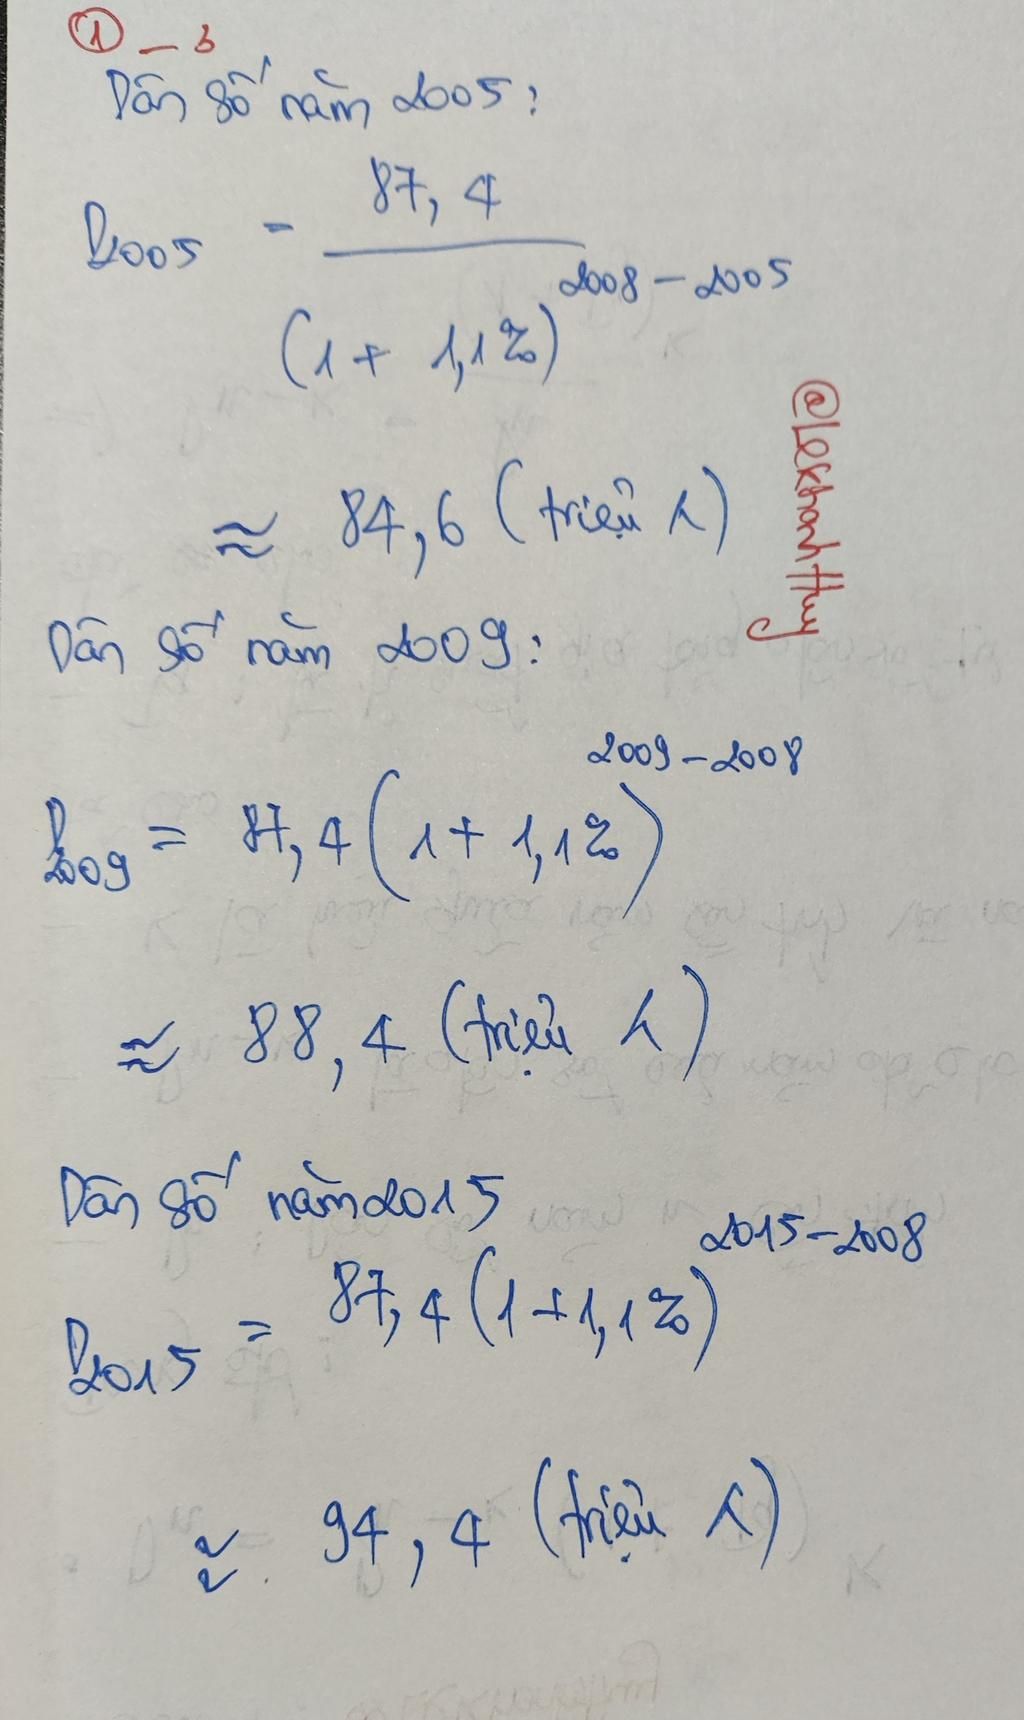 ① - b
Dân số năm 2005:
D2005 = 87,4 / (1 + 1,1%)^2008-2005
≈ 84,6 (triệu ng)
@LeKhanhHuy
Dân số năm 2009:
D2009 = 87,4 (1 + 1,1%)^2009-2008
≈ 88,4 (triệu ng)
Dân số năm 2015
D2015 = 87,4 (1 + 1,1%)^2015-2008
≈ 94,4 (triệu ng)